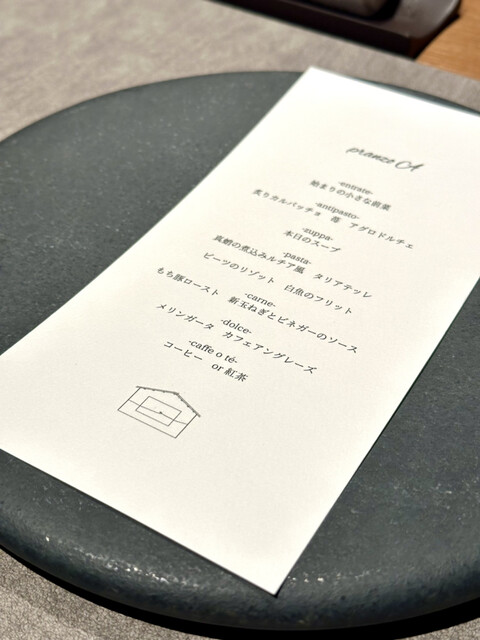 pranzo CA
-entrate-
始まりの小さな前菜
-antipasto-
炙りカルパッチョ 苺 アグロドルチェ
-zuppa-
本日のスープ
-pasta-
真蛸の煮込みルチア風 タリアテッレ
ビーツのリゾット 白魚のフリット
-carne-
もち豚ロースト 新玉ねぎとビネガーのソース
-dolce-
メリンガータ カフェアングレーズ
-caffe o té-
コーヒー or 紅茶